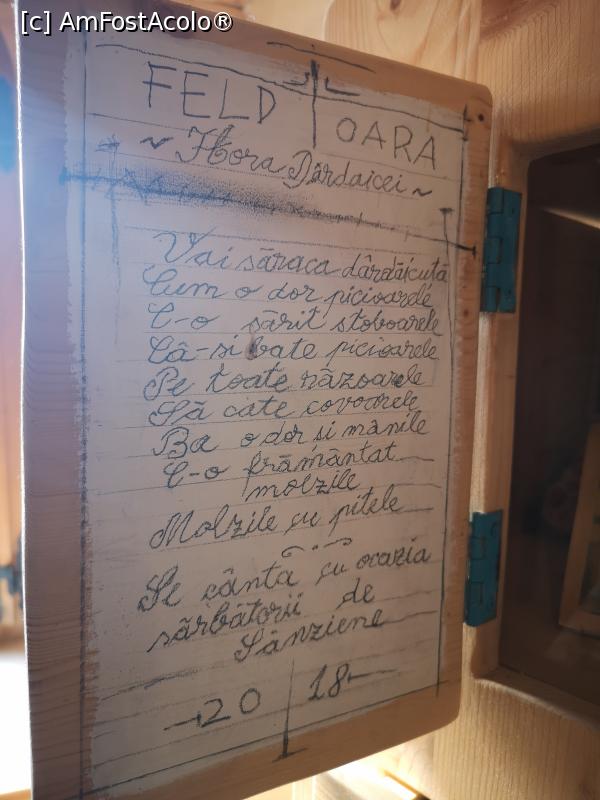 [c] AmFostAcolo®
FELD OARA
~ Hora Dârdaicei ~
Vai săraca dârdăicuță
Cum o dor picioarele
C-o sărit stoboarele
Că-si bate picioarele
Pe toate răzoarele
Să cate covoarele
Ba o dor și mânile
C-o frământat
molzile
Molzile cu pitele
Se cântă cu ocazia
sărbătorii de
Sânziene
20 18